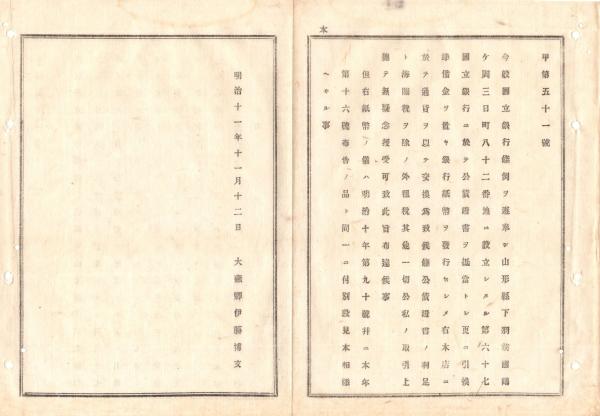 本
甲第五十一號
今般國立銀行條例ヲ遵奉シ山形縣下羽前國鶴
ケ岡三日町八十二番地ニ設立シタル第六十七
國立銀行ニ於テ公債證書ヲ抵當トシ更ニ引換
準備金ヲ置キ銀行紙幣ヲ發行セシメ右本店ニ
於テ通貨ヲ以テ交換爲致候條公債證書ノ利足
ト海關税ヲ除ノ外租税其他一切公私ノ取引上
總テ無疑念授受可致此旨布達候事
但右紙幣ノ儀ハ明治十年第九十號幷ニ本年
第十六號布告ノ品ト同一ニ付別段見本相添
ヘサル事
明治十一年十一月十二日 大藏卿伊藤博文